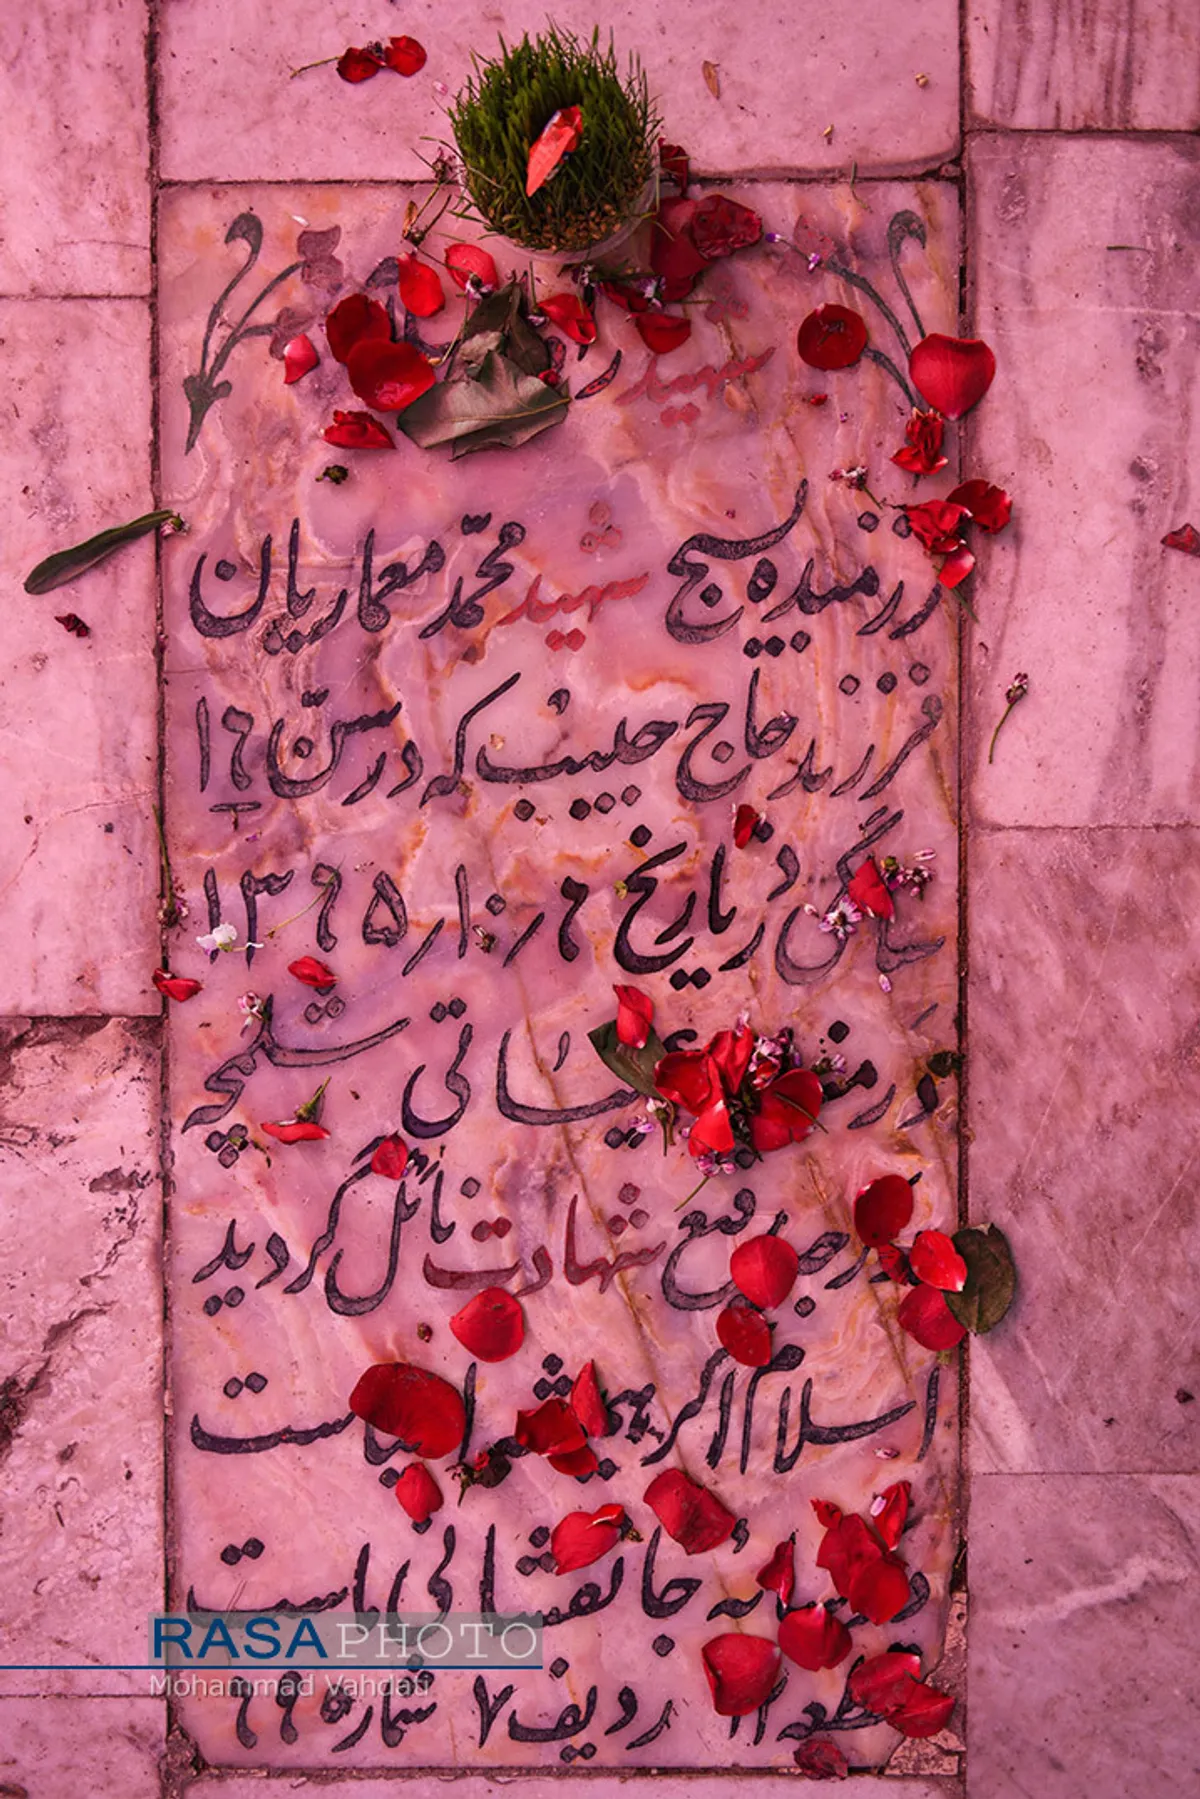 شهید
رزمنده بسیج شهید محمّد معماریان
فرزند حاج حبیب که در سنّ ۱۶
سالگی در تاریخ ۴ر۱۰ر۱۳۶۵
در عملیاتی شلمچه
بدرجه رفیع شهادت نائل گردید
اسلام اگر همیشه
در سایه جانفشانی ماست
قطعه ردیف ۷ شماره ۶۶
RASAPHOTO
Mohammad Vahdati